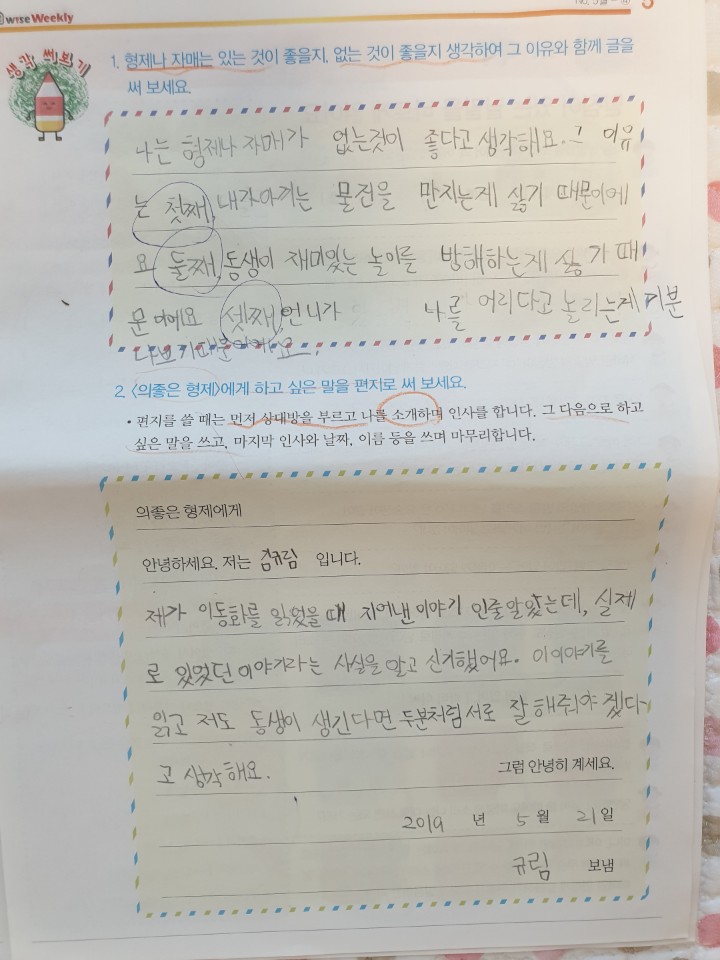 wise Weekly
5
생각 써보기
1. 형제나 자매는 있는 것이 좋을지, 없는 것이 좋을지 생각하여 그 이유와 함께 글을
써 보세요.
나는 형제나 자매가 없는것이 좋다고 생각해요. 그 이유
는 첫째, 내가아끼는 물건을 만지는게 싫기 때문이에
요 둘째, 동생이 재미있는 놀이를 방해하는게 싫기 때
문이에요 셋째, 언니가 나를 어리다고 놀리는게 기분
나쁘기때문이에요.
2. <의좋은 형제>에게 하고 싶은 말을 편지로 써 보세요.
• 편지를 쓸 때는 먼저 상대방을 부르고 나를 소개하며 인사를 합니다. 그 다음으로 하고
싶은 말을 쓰고, 마지막 인사와 날짜, 이름 등을 쓰며 마무리합니다.
의좋은 형제에게
안녕하세요. 저는 김규림 입니다.
제가 이동화를 읽었을때 지어낸이야기 인줄알았는데, 실제
로 있었던이야기라는 사실을 알고 신기했어요. 이이야기를
읽고 저도 동생이 생긴다면 두분처럼 서로 잘 해줘야 겠다
고 생각해요. 그럼 안녕히 계세요.
2019 년 5 월 21 일
규림 보냄